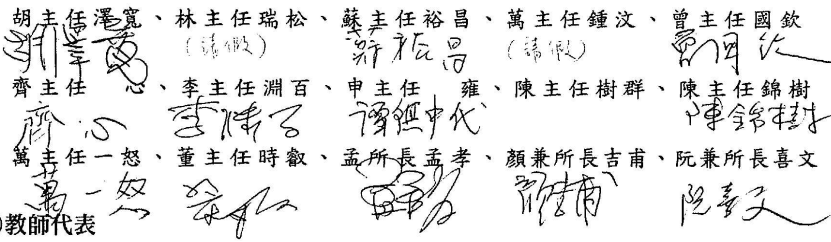 胡主任澤寬、林主任瑞松、蘇主任裕昌、萬主任鍾汶、曾主任國欽
(請假) 蘇裕昌 (請假) 曾國欽
齊主任 心、李主任淵百、申主任 雍、陳主任樹群、陳主任錦樹
齊心 中代 陳錦樹
萬主任一怒、董主任時叡、孟所長孟孝、顏兼所長吉甫、阮兼所長喜文
萬一怒 阮喜文
)教師代表